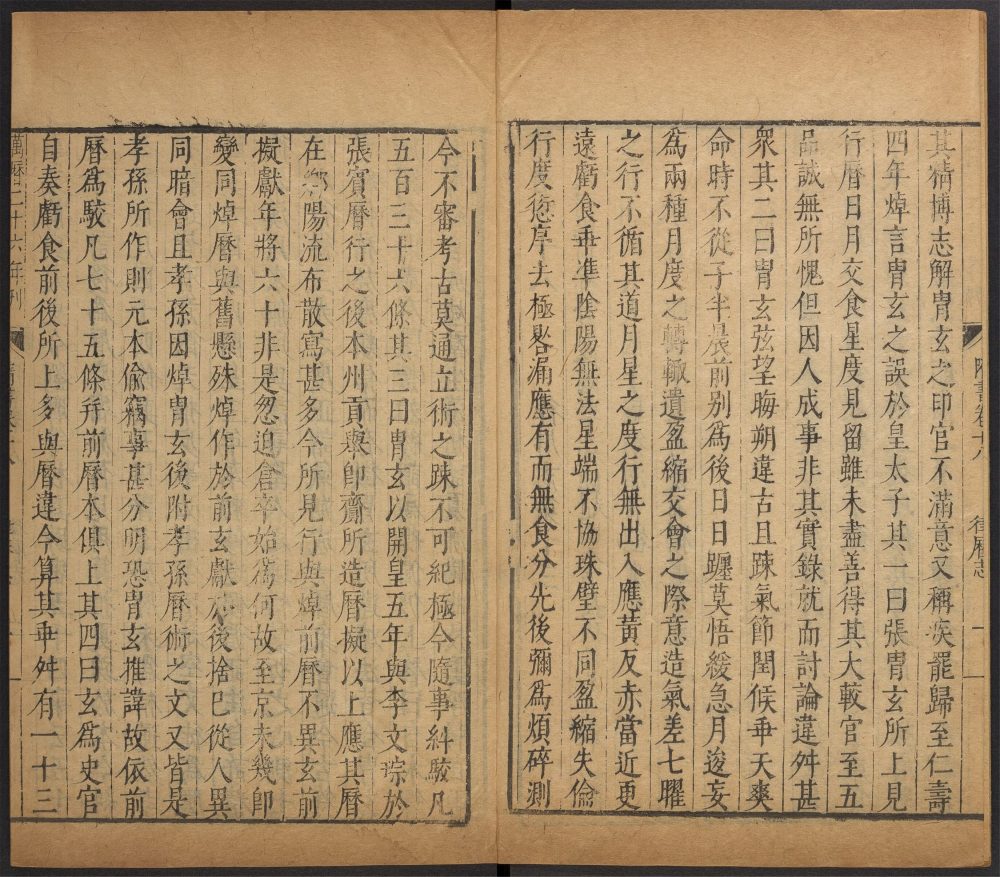 隋書卷十八 律曆志 一
其精博志解胄玄之印官不滿意又稱疾罷歸至仁壽
四年焯言胄玄之誤於皇太子其一曰張胄玄所上見
行曆日月交食星度見留雖未盡善得其大較官至五
品誠無所愧但因人成事非其實錄就而討論違舛甚
衆其二曰胄玄弦望晦朔違古且踈氣節閏候乖天爽
命時不從子半晨前别爲後日日躔莫悟緩急月逡妄
爲兩種月度之轉輙遺盈縮交會之際意造氣差七曜
之行不循其道月星之度行無出入應黃反赤當近更
遠虧食乖凖陰陽無法星端不協珠璧不同盈縮失倫
行度愆序去極晷漏應有而無食分先後彌爲煩碎測
今不審考古莫通立術之踈不可紀極今隨事糾駮凡
五百三十六條其三曰胄玄以開皇五年與李文琮於
張賓曆行之後本州貢舉卽齎所造曆擬以上應其曆
在鄉陽流布散寫甚多今所見行與焯前曆不異玄前
擬獻年將六十非是忽迫倉卒始爲何故至京未幾卽
變同焯曆與舊懸殊焯作於前玄獻於後捨已從人異
同暗會且孝孫因焯胄玄後附孝孫曆術之文又皆是
孝孫所作則元本偷竊事甚分明恐胄玄推諱故依前
曆爲駮凡七十五條幷前曆本俱上其四曰玄爲史官
自奏虧食前後所上多與曆違今算其乖舛有一十三
萬曆二十六年刋